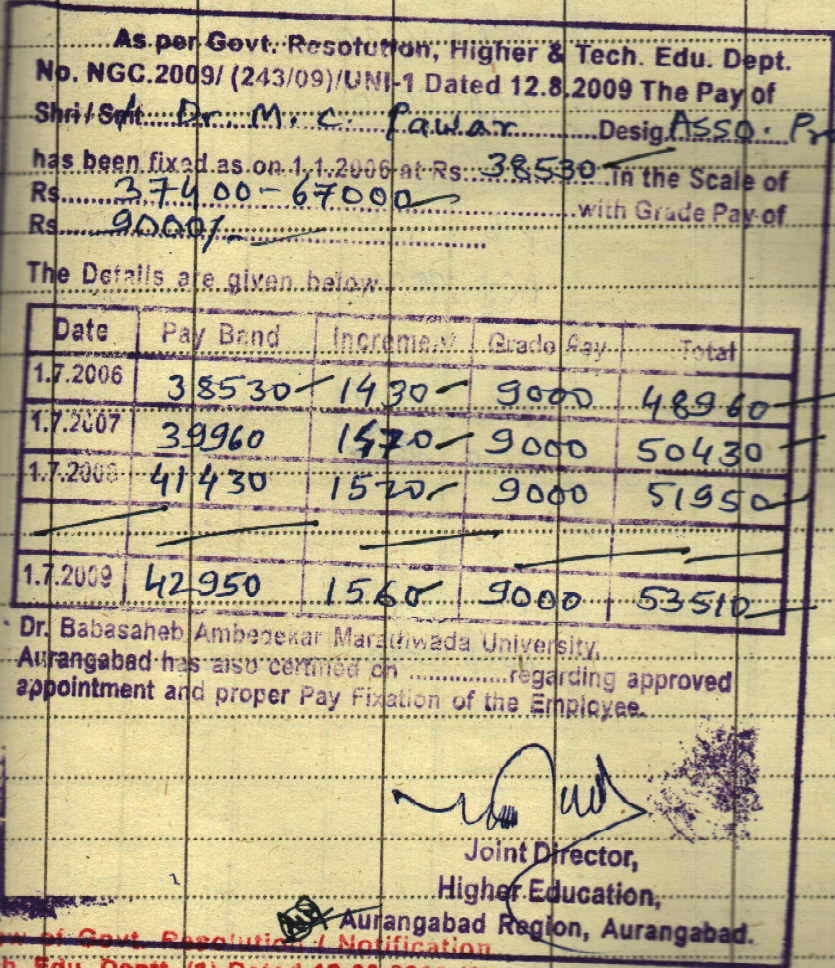 As per Govt. Resolution, Higher & Tech. Edu. Dept.
No. NGC.2009/ (243/09)/UNI-1 Dated 12.8.2009 The Pay of
Shri/Smt. Dr. M. C. Pawar Desig. Asso. Pr
has been fixed as on 1.1.2006 at Rs. 38530 in the Scale of
Rs. 37400-67000 with Grade Pay of
Rs. 9000/-
The Details are given below
Date Pay Band Increment Grade Pay Total
1.7.2006 38530 1430 9000 48960
1.7.2007 39960 1470 9000 50430
1.7.2008 41430 1520 9000 51950
1.7.2009 42950 1560 9000 53510
Dr. Babasaheb Ambedekar Marathwada University,
Aurangabad has also certified on ...............regarding approved
appointment and proper Pay Fixation of the Employee.
Joint Director,
Higher Education,
Aurangabad Region, Aurangabad.
of Govt. Resolution / Notification
Edu. Deptt.